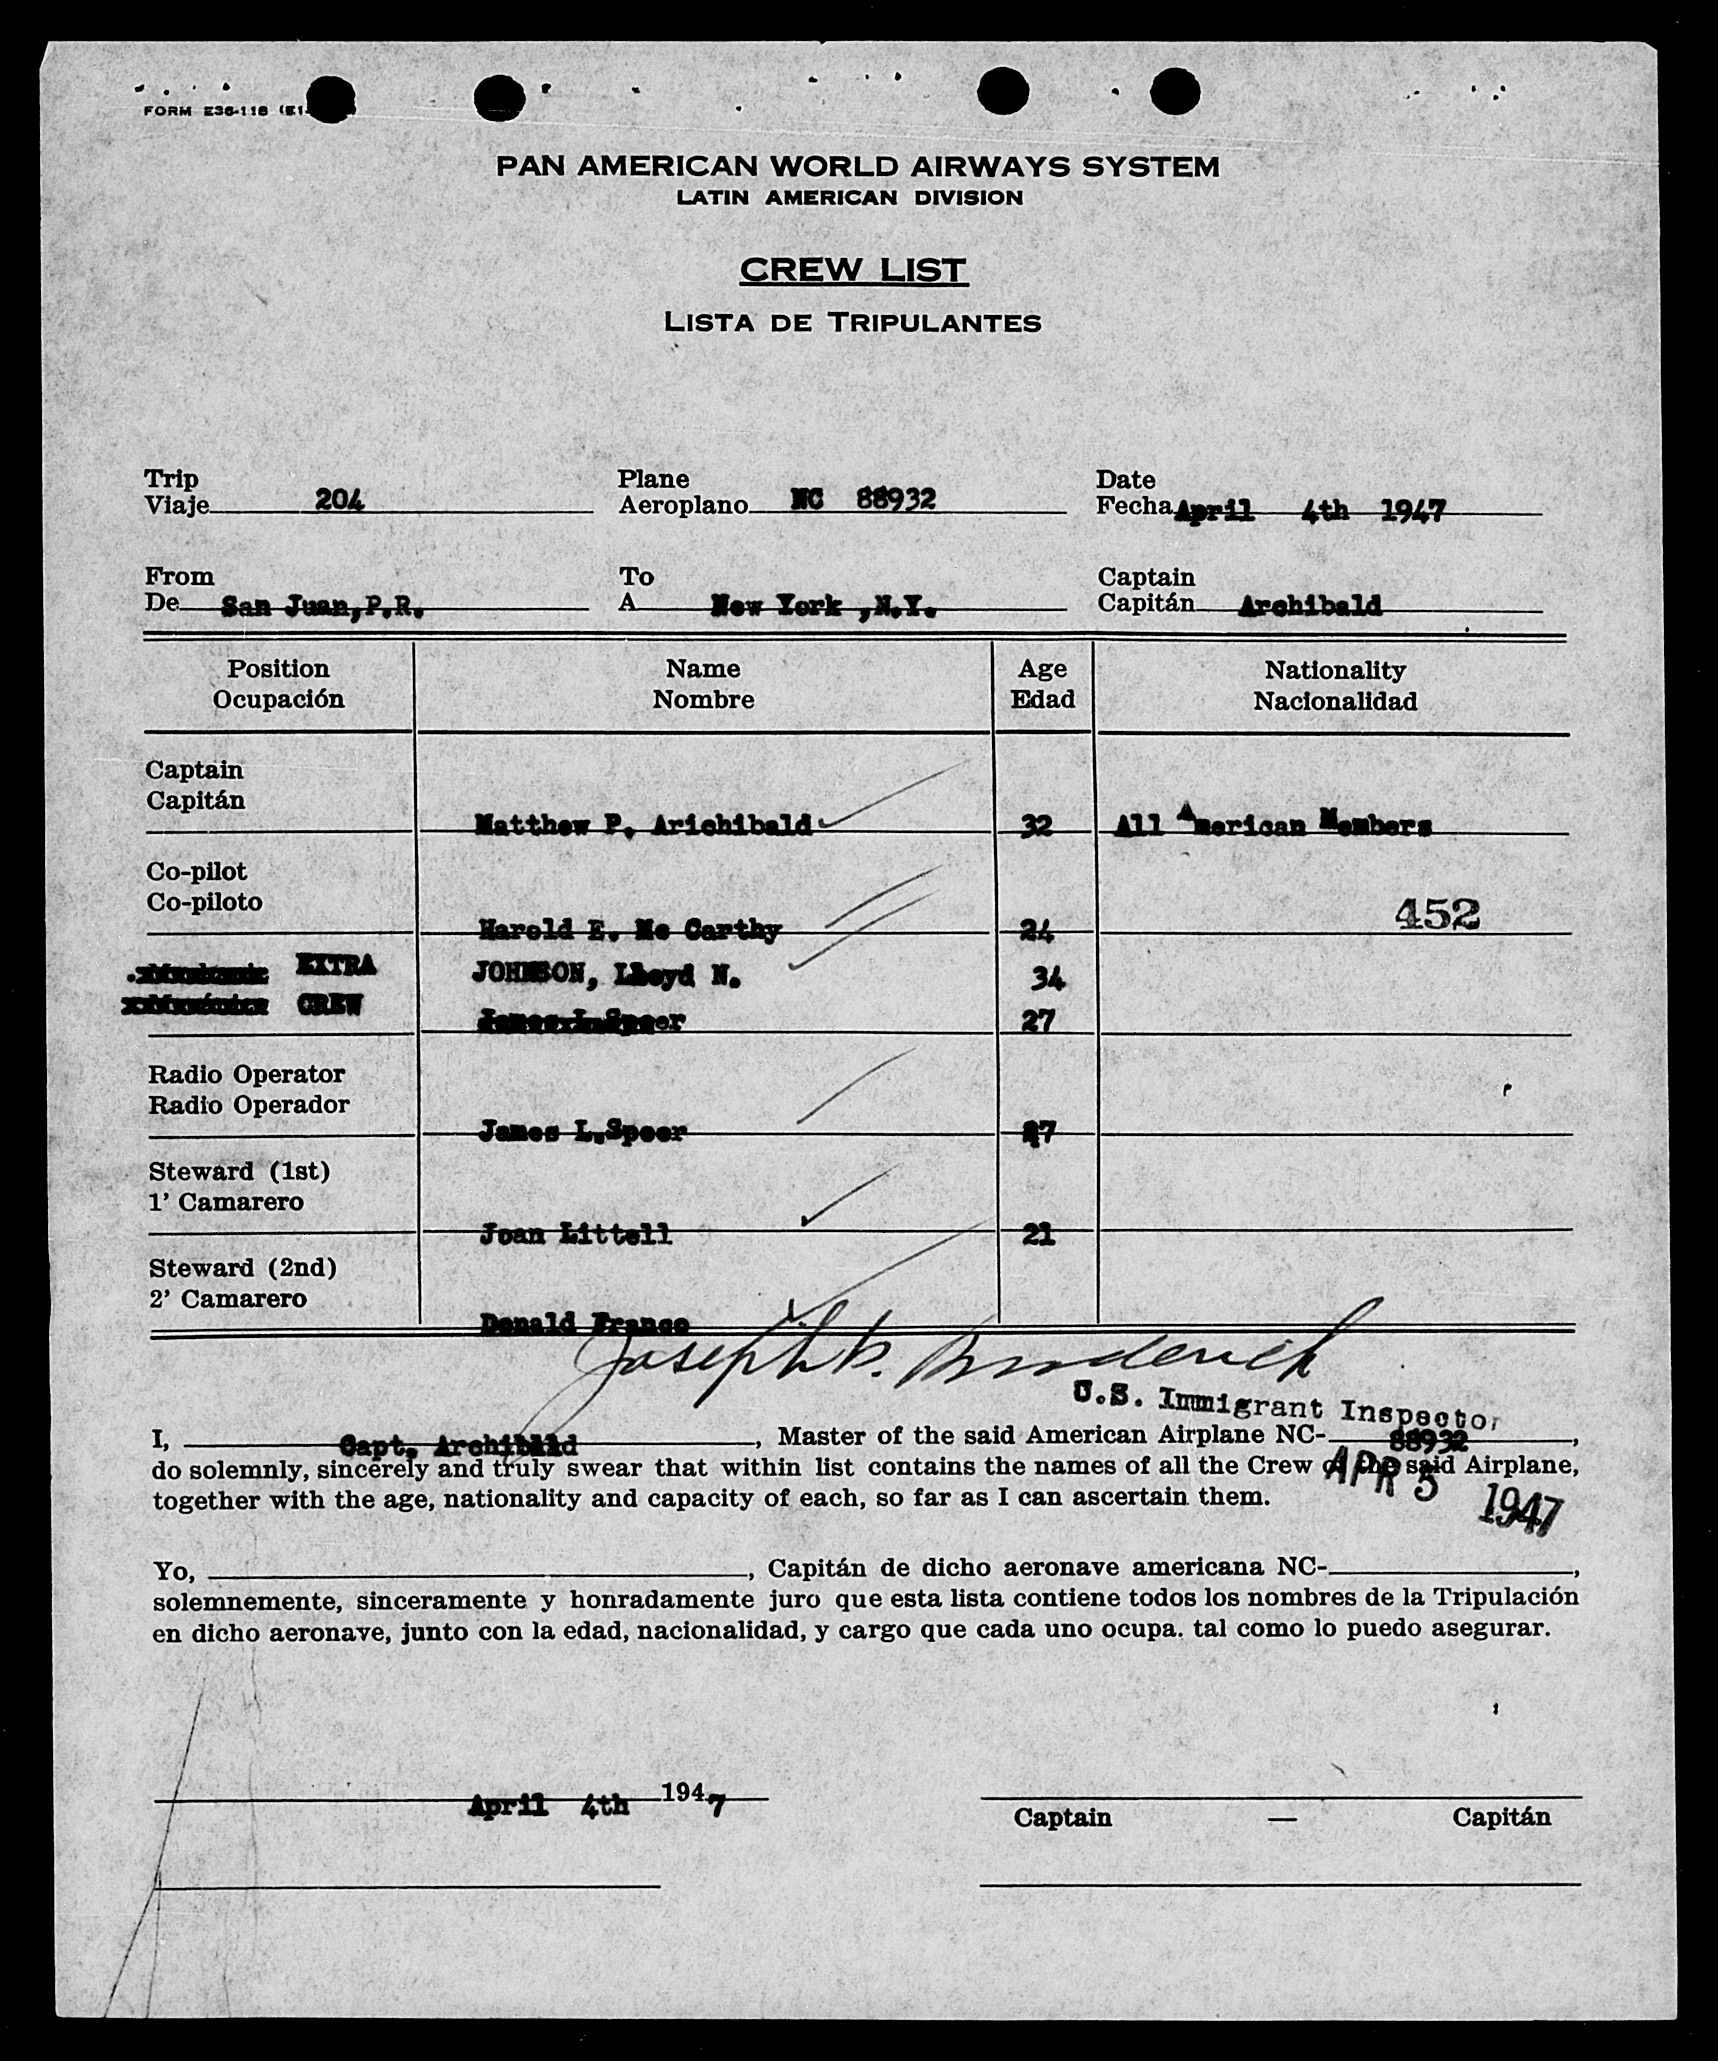 FORM E36-118 (E1-
PAN AMERICAN WORLD AIRWAYS SYSTEM
LATIN AMERICAN DIVISION
CREW LIST
LISTA DE TRIPULANTES
Trip Plane Date
Viaje 204 Aeroplano NC 88932 Fecha April 4th 1947
From To Captain
De San Juan,P.R. A New York ,N.Y. Capitán Archibald
Position Name Age Nationality
Ocupación Nombre Edad Nacionalidad
Captain
Capitán
Matthew P. Arichibald 32 All American Members
Co-pilot
Co-piloto 452
Harold E. Mc Carthy 24
EXTRA JOHNSON, Lloyd N. 34
CREW James L.Speer 27
Radio Operator
Radio Operador
James L.Speer 27
Steward (1st)
1' Camarero
Joan Littell 21
Steward (2nd)
2' Camarero
Donald Franco
Joseph B. Broderick
U.S. Immigrant Inspector
I, Capt. Archibald, Master of the said American Airplane NC- 88932,
do solemnly, sincerely and truly swear that within list contains the names of all the Crew of the said Airplane,
together with the age, nationality and capacity of each, so far as I can ascertain them.
APR 5 1947
Yo, , Capitán de dicho aeronave americana NC- ,
solemnemente, sinceramente y honradamente juro que esta lista contiene todos los nombres de la Tripulación
en dicho aeronave, junto con la edad, nacionalidad, y cargo que cada uno ocupa. tal como lo puedo asegurar.
April 4th 1947
Captain — Capitán